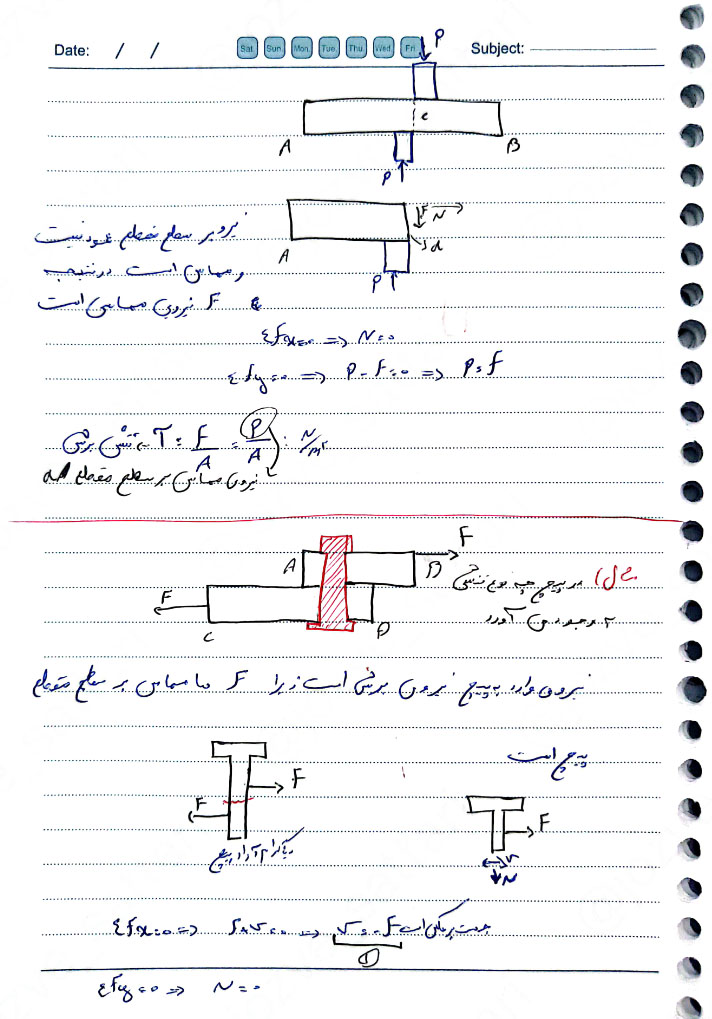 Date: / / Sat Sun Mon Tue Thu Wed Fri Subject:
P
C
A B
P
F N
نیرو بر سطح مقطع عمود نیست
d
A
و مماس است در نتیجه
P
F نیروی مماسی است
Σfx=0 ⇒ N=0
Σfy=0 ⇒ P-F=0 ⇒ P=f
تنش برشی τ = F/A = P/A : N/m²
نیروی مماس بر سطح مقطع
F
A B
مثال) در پیچ چه نوع تنشی
F
بوجود می آورد
C D
نیروی وارد به پیچ نیروی برشی است زیرا F ها مماس بر سطح مقطع
پیچ است
F
F F
دیاگرام آزاد پیچ
V
N
Σfx=0 ⇒ F+V=0 ⇒ V=-F جهت برعکس است
①
Σfy=0 ⇒ N=0